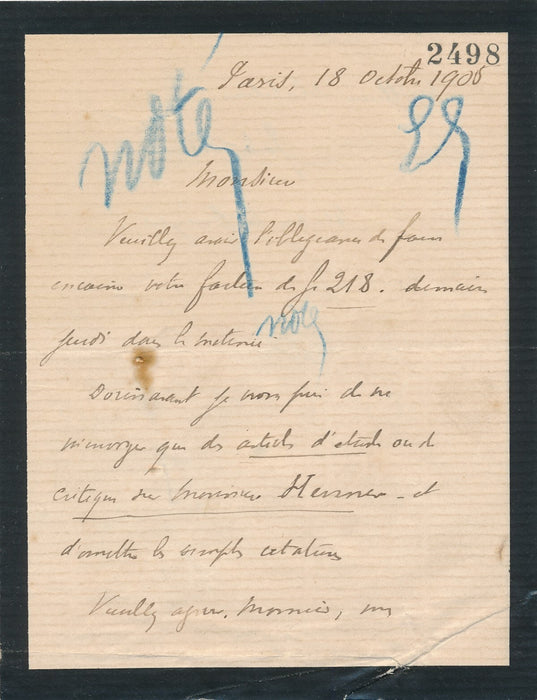 2498
Paris, 18 Octobre 1905
noté
Monsieur
Veuillez avoir l'obligeance de faire
encaisser votre facture de fr 218. demain
jeudi dans la matinée
noté
Dorénavant je vous prie de ne
m'envoyer que des articles d'étude ou de
critique sur Monsieur Henner - et
d'omettre les simples citations
Veuillez agréer, Monsieur, mes